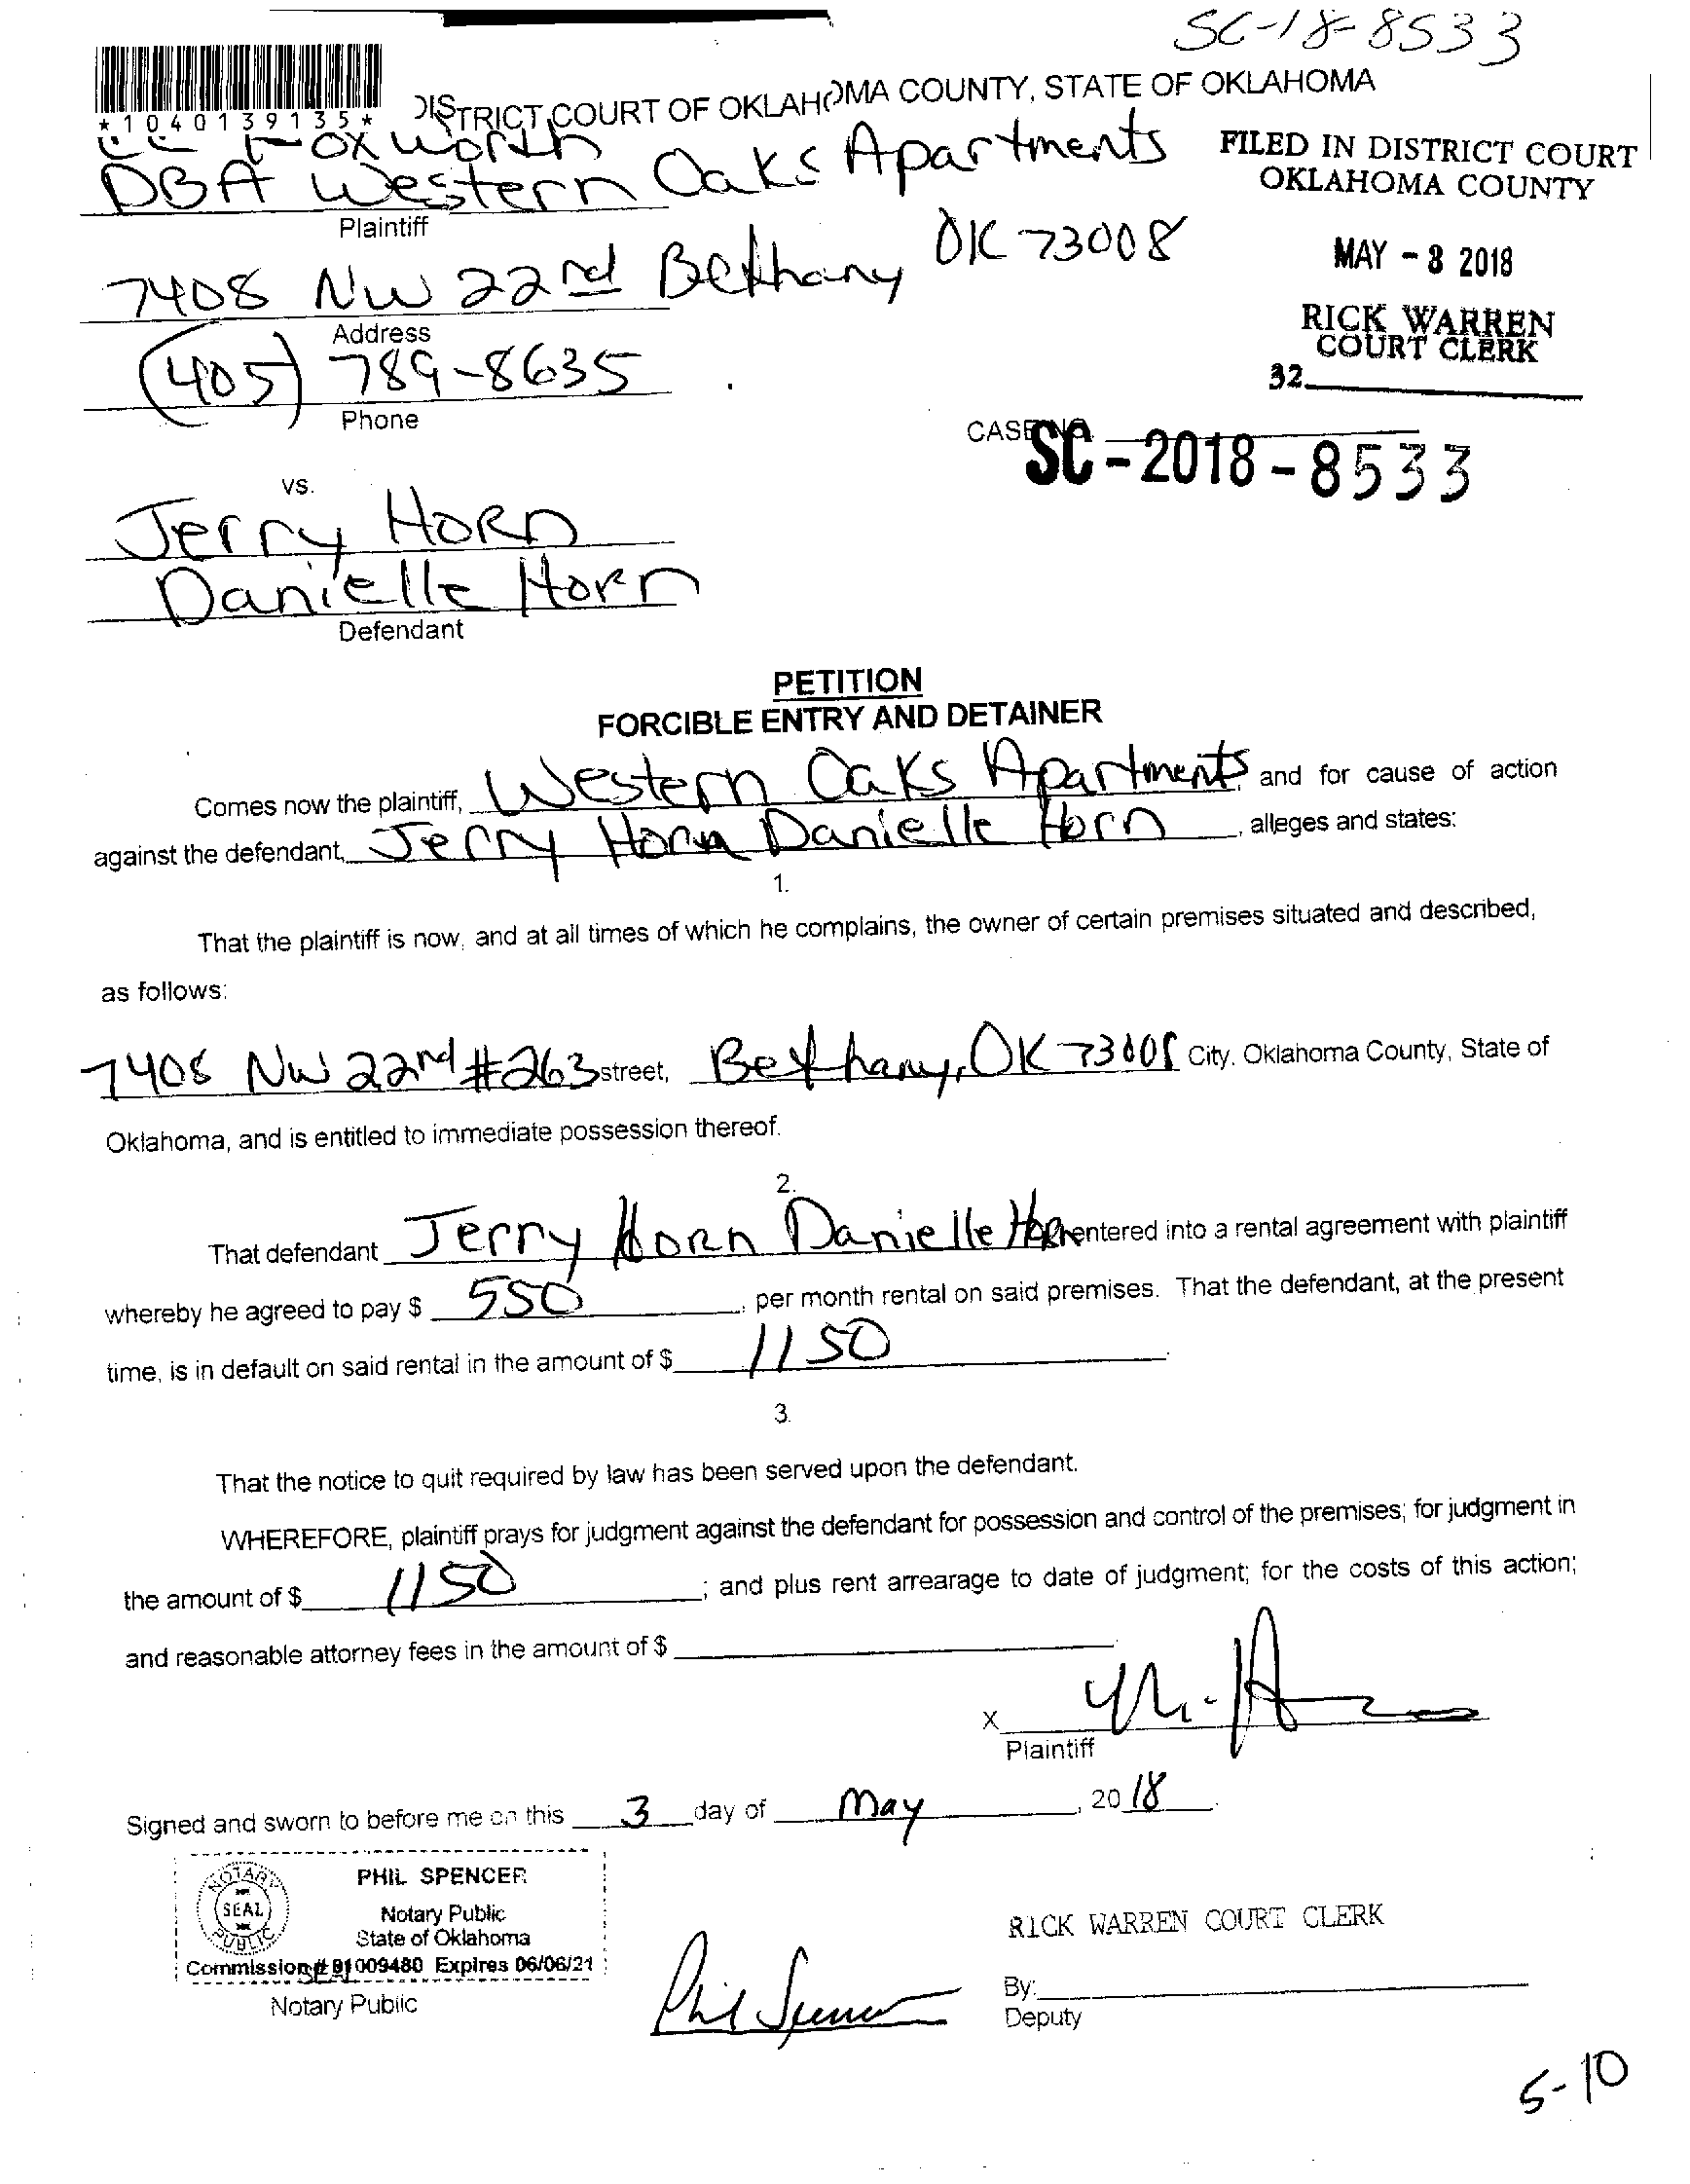 SC-18-8533
*1040139135*
DISTRICT COURT OF OKLAHOMA COUNTY, STATE OF OKLAHOMA
Foxworth
DBA Western Oaks Apartments
Plaintiff
FILED IN DISTRICT COURT
OKLAHOMA COUNTY
7408 NW 22nd Bethany OK 73008
Address
MAY - 3 2018
RICK WARREN
COURT CLERK
32
(405) 789-8635
Phone
CASE NO. SC-2018-8533
vs.
Jerry HORN
Danielle Horn
Defendant
PETITION
FORCIBLE ENTRY AND DETAINER
Comes now the plaintiff, Western Oaks Apartments, and for cause of action
against the defendant, Jerry Horn Danielle Horn, alleges and states:
1.
That the plaintiff is now, and at all times of which he complains, the owner of certain premises situated and described,
as follows:
7408 NW 22nd #263 street, Bethany, OK 73008 City, Oklahoma County, State of
Oklahoma, and is entitled to immediate possession thereof.
2.
That defendant Jerry Horn Danielle Horn entered into a rental agreement with plaintiff
whereby he agreed to pay $ 550, per month rental on said premises. That the defendant, at the present
time, is in default on said rental in the amount of $ 1150.
3.
That the notice to quit required by law has been served upon the defendant.
WHEREFORE, plaintiff prays for judgment against the defendant for possession and control of the premises; for judgment in
the amount of $ 1150; and plus rent arrearage to date of judgment; for the costs of this action;
and reasonable attorney fees in the amount of $
X
Plaintiff
Signed and sworn to before me on this 3 day of May, 2018.
NOTARY
SEAL
PUBLIC
PHIL SPENCER
Notary Public
State of Oklahoma
Commission # 01009480 Expires 06/06/21
Notary Public
Phil Spencer
RICK WARREN COURT CLERK
By:
Deputy
5-10